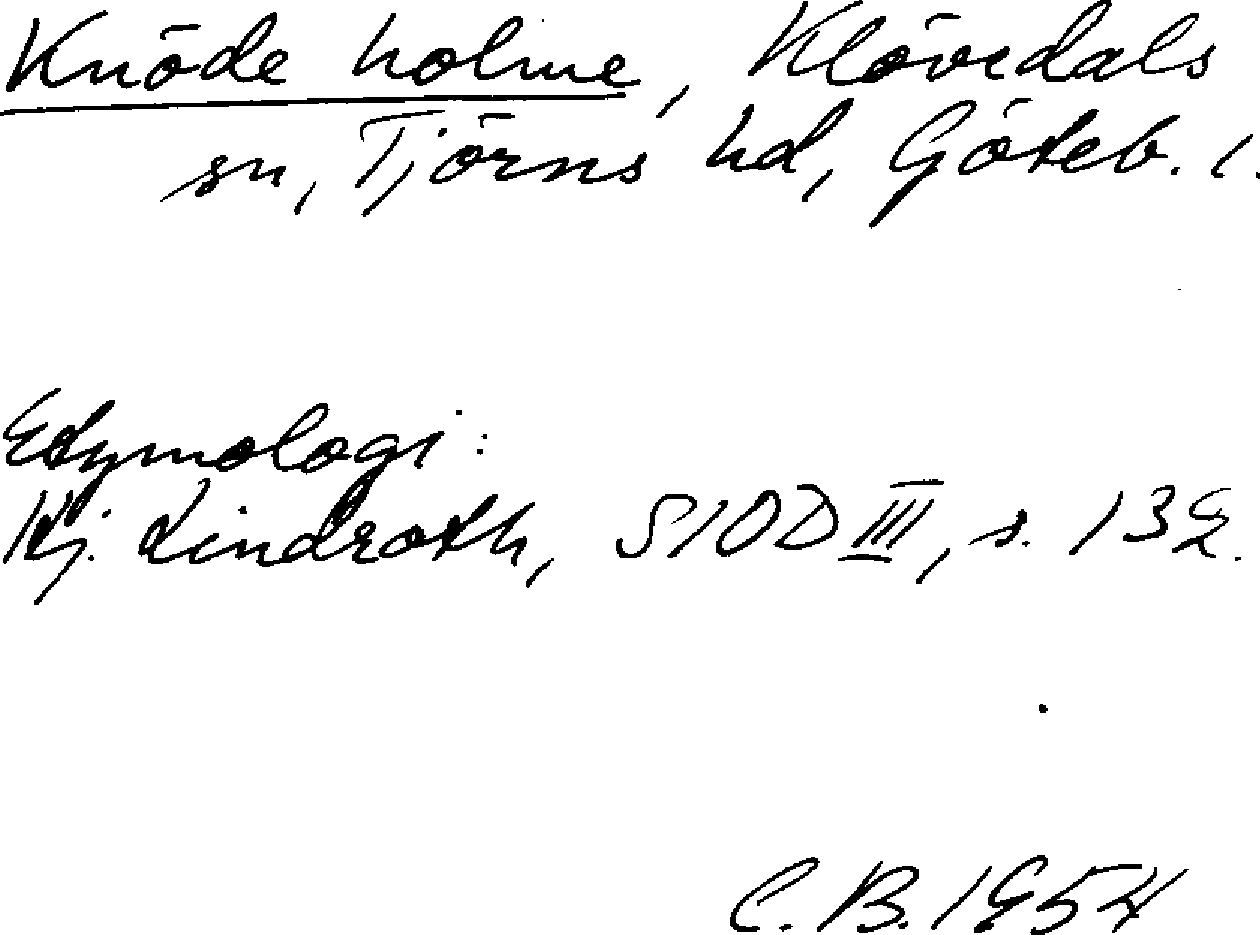 Knöde holme, Klövedals
sn, Tjörns hd, Göteb. l.
Etymologi:
Hj. Lindroth, SIOD III, s. 132.
C.B. 1954